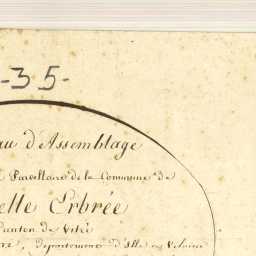 -35-
au d'Assemblage
Parcellaire de la Commune de
elle Erbrée
Canton de Vitré
, département d'Ille et Vilaine